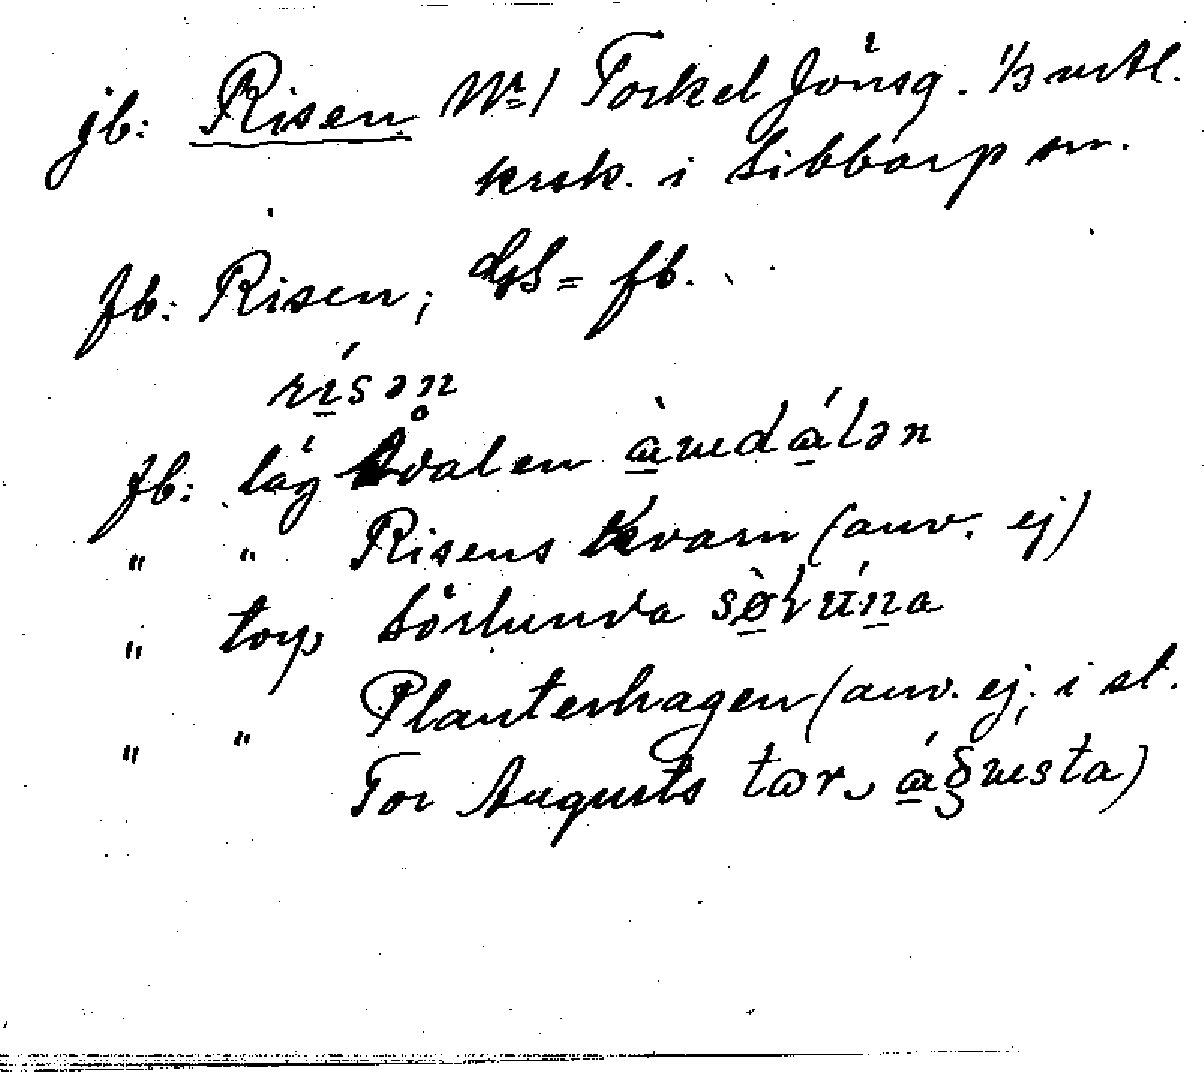 jb: Risen № 1 Torkel Jönsg. 1/3 mtl.
krsk. i Sibbarp sn.
fb: Risen; GS = fb.
rísən̥
fb: läg Ådalen àwdálən
" " Risens Kvarn (anv. ej)
" torp Sörlunda
" " Planterhagen (anv. ej; i st.
For Augusts